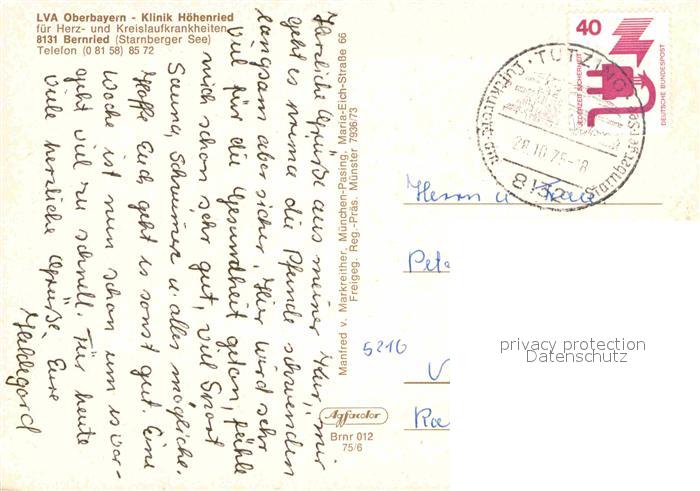 LVA Oberbayern - Klinik Höhenried
für Herz- und Kreislaufkrankheiten
8131 Bernried (Starnberger See)
Telefon (0 81 58) 85 72
Herzliche Grüße aus meiner Kur, mir
geht es prima die Pfunde schwinden
langsam aber sicher. Hier wird sehr
viel für die Gesundheit getan, fühle
mich schon sehr gut, viel Sport
Sauna, Schwimmen u. alles mögliche.
Hoffe Euch geht es sonst gut. Eine
Woche ist nun schon um es ver-
geht viel zu schnell. Für heute
viele herzliche Grüße Eure
Hildegard
Manfred v. Markreither, München-Pasing, Maria-Eich-Straße 66
Freigeg. Reg.-Präs. Münster 7936/73
Agfacolor
Brnr 012
75/6
40
JEDERZEIT SICHERHEIT
DEUTSCHE BUNDESPOST
TUTZING
Luftkurort am Starnberger See
28.10.75-18
8132
Herrn u. Frau
Pete
5216
V
Ra
privacy protection
Datenschutz